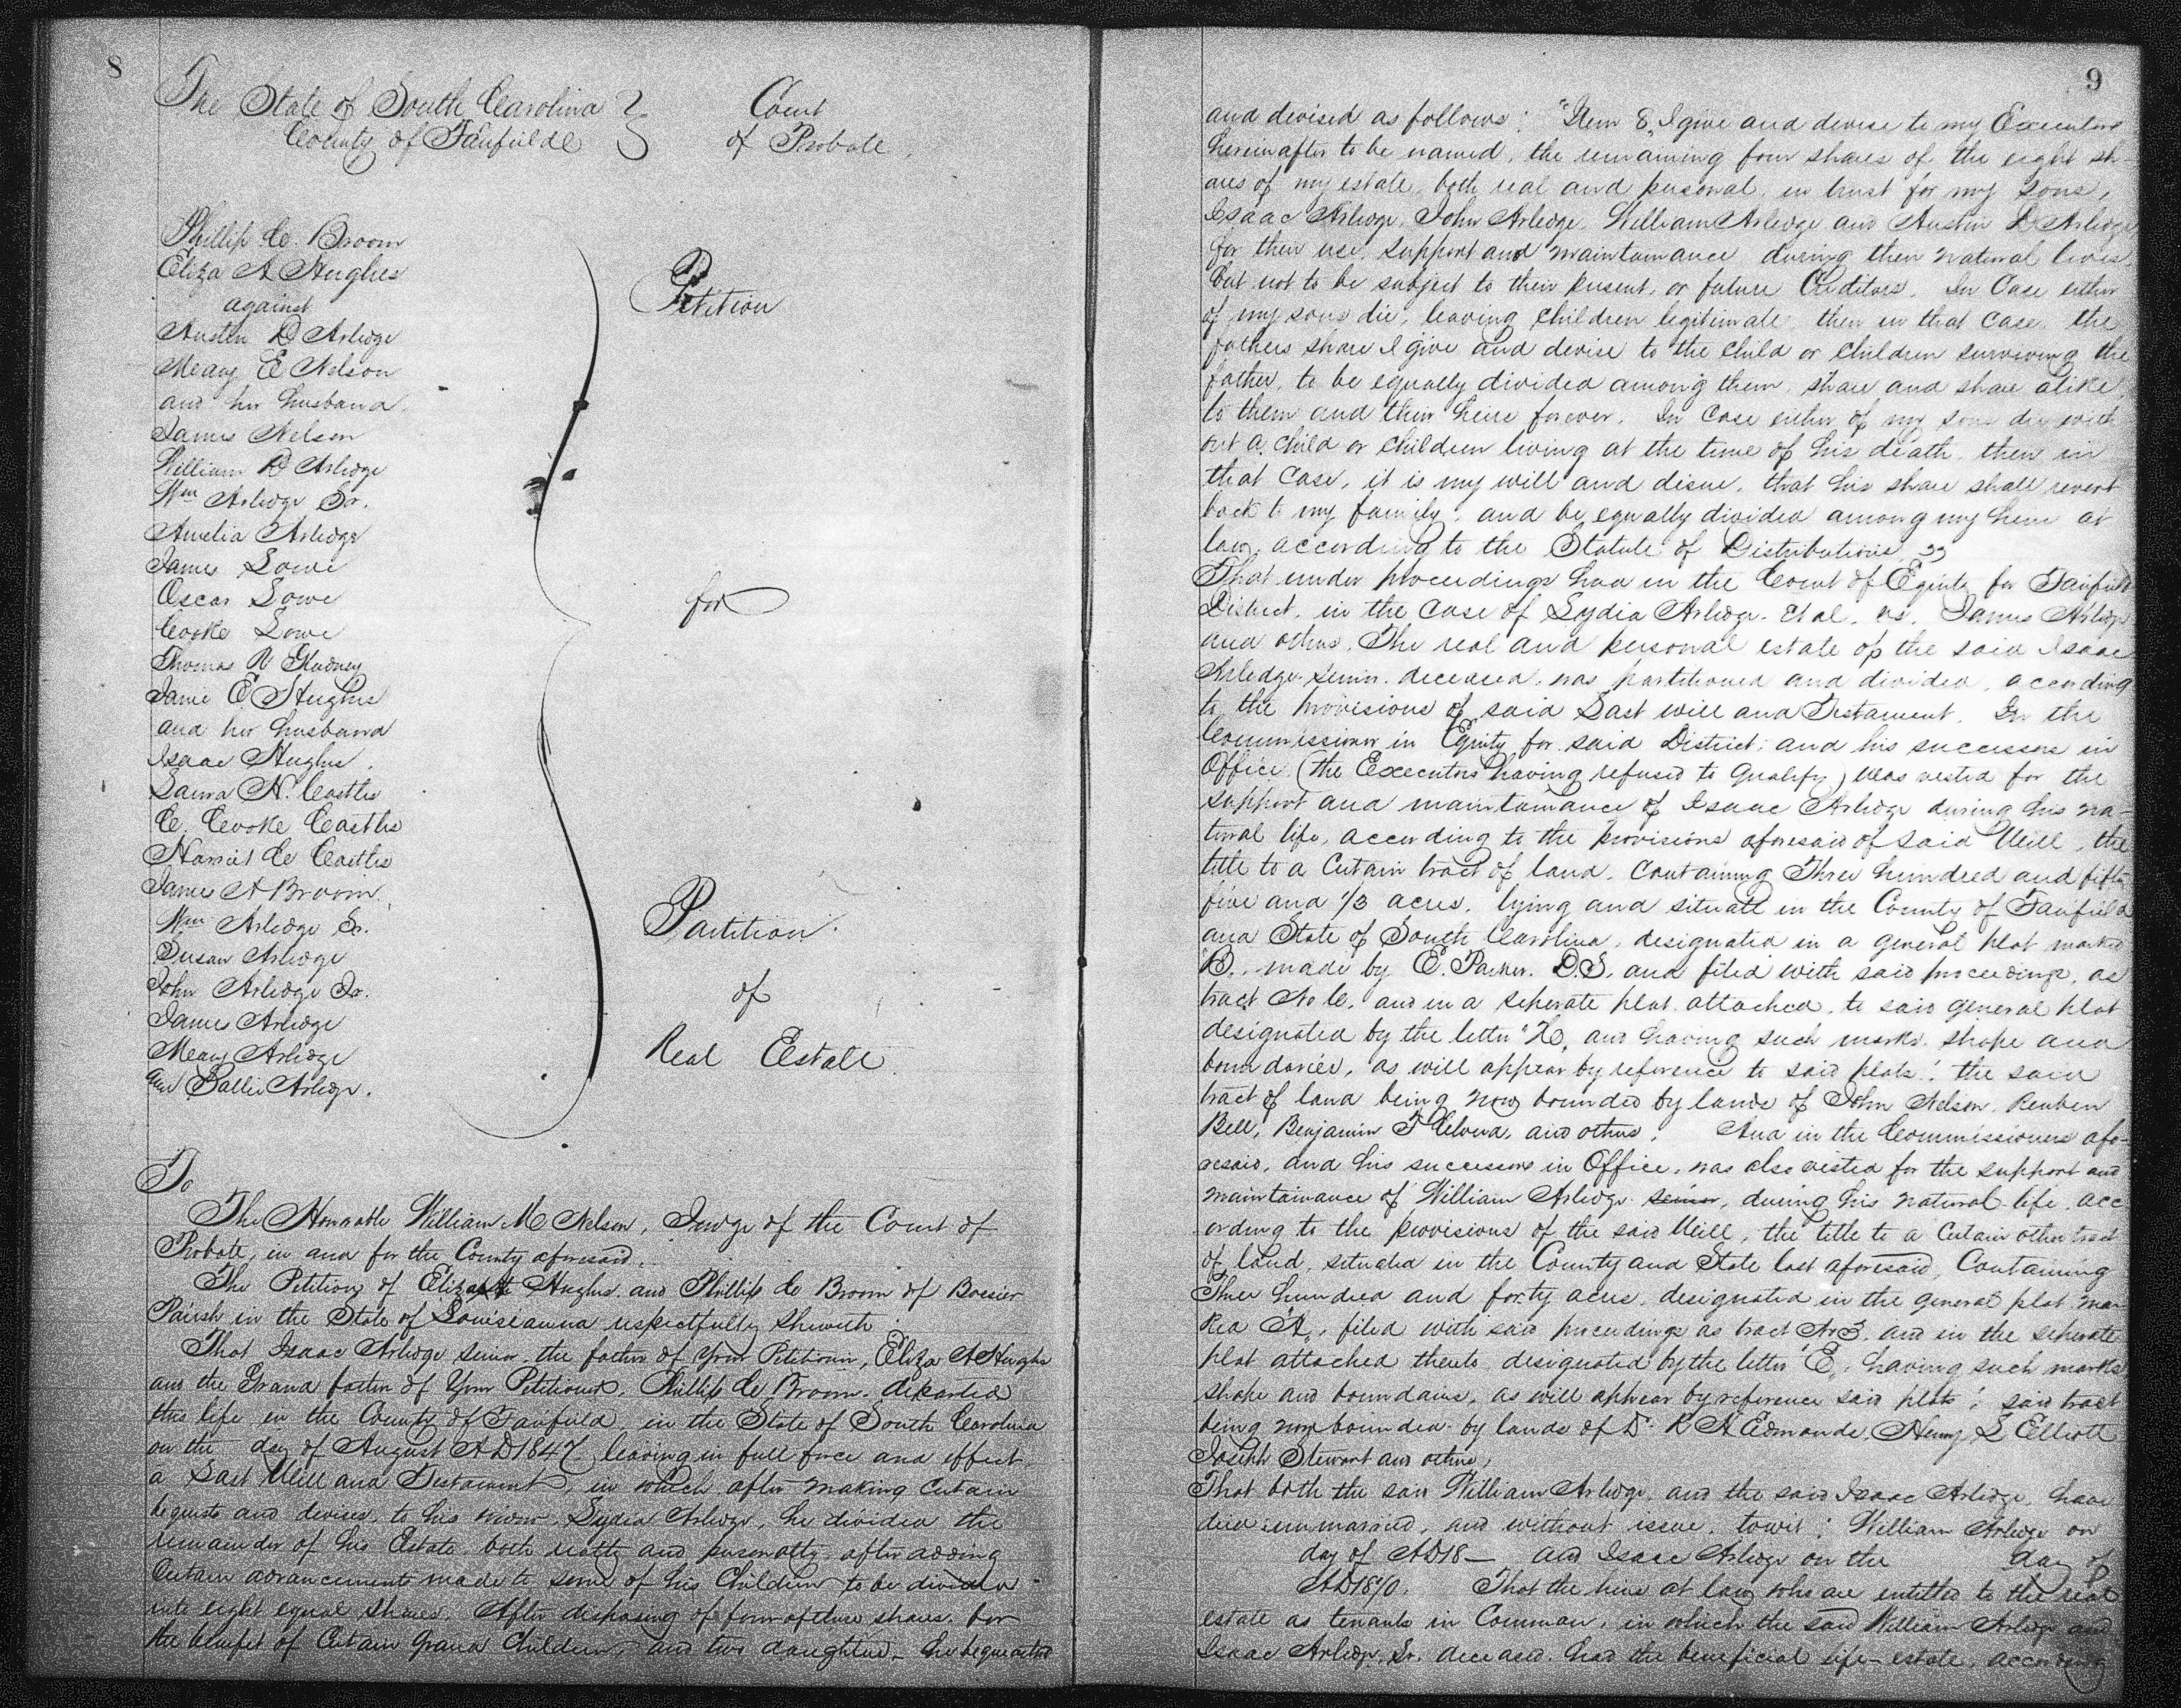 8
The State of South Carolina
County of Fairfield
Court
of Probate.
Phillip C. Broom
Eliza A Hughes
against
Austin D Arledge
Meary E Nelson
and her husband
James Nelson
William D Arledge
Wm Arledge Sr.
Amelia Arledge
James Lowe
Oscar Lowe
Cooke Lowe
Thomas R Gladney
Janie E Hughes
and her husband
Isaac Hughes.
Laura N. Castles
C. Cooke Castles
Harriet C Castles
James A Broom.
Wm Arledge Sr.
Susan Arledge
John Arledge Jr.
James Arledge
Meary Arledge
and Sallie Arledge.
Petition
for
Partition
of
Real Estate
To
The Honorable William M Nelson, Judge of the Court of
Probate, in and for the County aforesaid.
The Petition of Eliza Hughes and Phillip C Broom of Bosier
Parish in the State of Louisianna respectfully sheweth
That Isaac Arledge senior the father of your Petitioner, Eliza A Hughes
and the Grand father of Your Petitioner, Phillip C Broom. departed
this life in the County of Fairfield in the State of South Carolina
on the day of August AD 1847 leaving in full force and effect
a Last Will and Testament, in which after making Certain
bequests and devises, to his widow, Lydia Arledge, he divided the
remainder of his Estate both realty and personalty after adding
Certain advancements made to some of his Children to be divided
into eight equal Shares. After disposing of four of these shares. for
the benefit of Certain Grand Children, and two daughters he bequeathed
9
and devised as follows: "Item 8, I give and devise to my Executors
hereinafter to be named, the remaining four shares of the eight sh-
ares of my estate both real and personal in trust for my Sons,
Isaac Arledge, John Arledge, William Arledge and Austin D Arledge
for their use, support and maintainance during their natural lives.
but not to be subject to their present, or future Creditors. In Case either
of my sons die, leaving Children legitimate, then in that Case, the
fathers share I give and devise to the child or children surviving the
father, to be equally divided among them, share and share alike,
to them and their heirs forever. In case either of my sons die with
out a child or children living at the time of his death, then in
that case, it is my will and desire, that his share shall revert
back to my family, and be equally divided among my heirs at
law, according to the Statute of Distributions"
That under proceedings had in the Court of Equity for Fairfield
District, in the case of Lydia Arledge. et al. vs. James Arledge
and others, The real and personal estate of the said Isaac
Arledge. senior. deceased. was partitioned and divided, according
to the provisions of said Last will and Testament. In the
Commissioner in Equity for said District; and his successors in
Office (the Executors having refused to Qualify) was vested for the
support and maintainance of Isaac Arledge during his na-
tural life, according to the provisions aforesaid of said Will, the
title to a Certain tract of land, Containing Three hundred and fifty
five and 1/3 acres, lying and situate in the County of Fairfield
and State of South Carolina, designated in a general plat marked
"B", made by E. Parker. D.S. and filed with said proceedings, as
tract No 6, and in a seperate plat attached, to said general plat
designated by the letter "H", and having such marks, shape and
boundaries, as will appear by reference to said plats: the said
tract of land being now bounded by lands of John Nelson, Reuben
Bell, Benjamin F and others. And in the Commissioners afo-
resaid, and his successors in Office, was also vested for the support and
maintainance of William Arledge senior, during his natural life, acc
ording to the provisions of the said Will, the title to a Certain other tract
of land, situated in the County and State last aforesaid, Containing
Three hundred and forty acres, designated in the general plat mar
ked "A", filed with said proceedings as tract No 3, and in the seperate
plat attached thereto designated by the letter "E", having such marks
shape and boundaries, as will appear by reference said plats: said tract
being now bounded by lands of Dr R H Edmonds, Henry L Elliott
Joseph Stewart and others,
That both the said William Arledge, and the said Isaac Arledge, have
died unmarried, and without issue. towit: William Arledge on
day of AD18— and Isaac Arledge on the day of
AD1870. That the heirs at law who are entitled to the real
estate as tenants in Common, in which the said William Arledge and
Isaac Arledge, Sr. deceased. had the beneficial life-estate, according